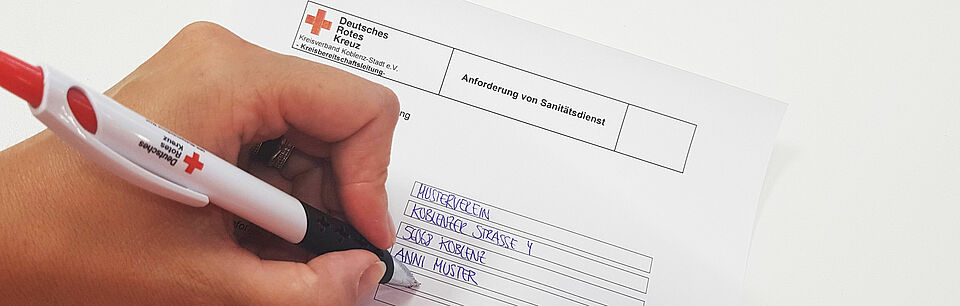 Deutsches
Rotes
Kreuz
Kreisverband Koblenz-Stadt e.V.
- Kreisbereitschaftsleitung-
Anforderung von Sanitätsdienst
MUSTERVEREIN
KOBLENZER STRASSE 4
56068 KOBLENZ
ANNI MUSTER
Deutsches
Rotes
Kreuz